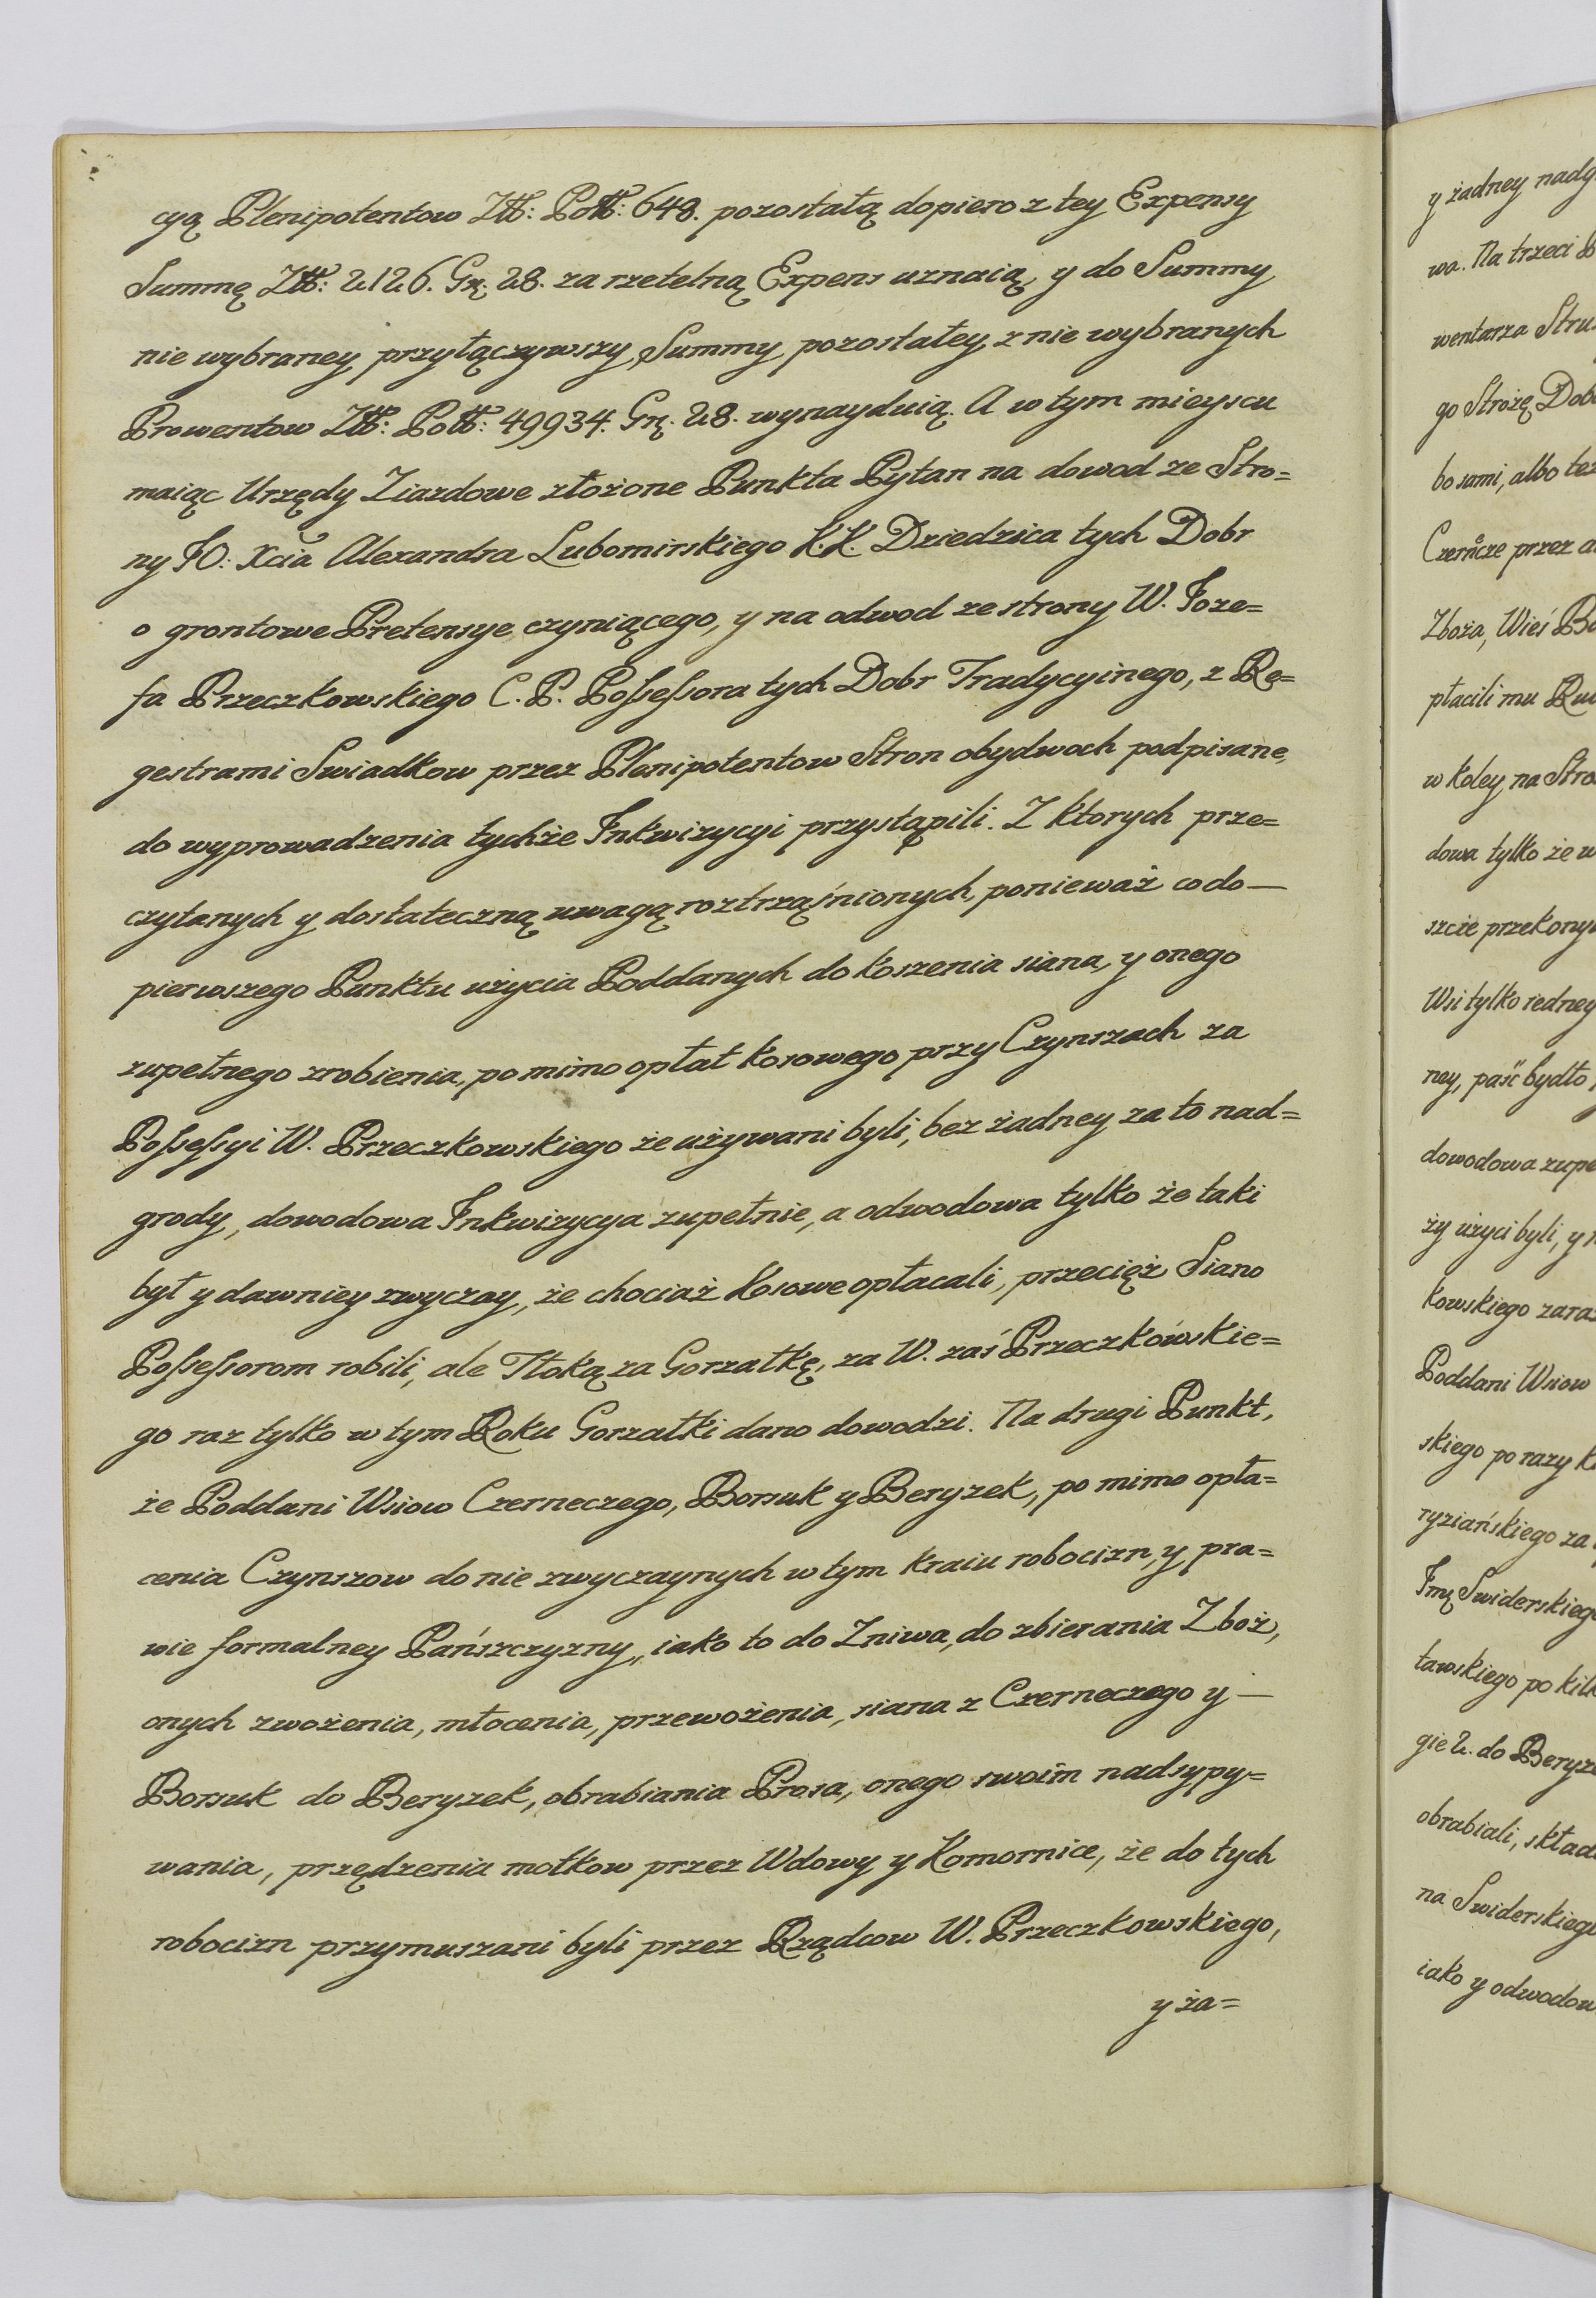 cyą Plenipotentow Złł: Poll: 648. pozostałą dopiero z tey Expensy
Summę Złł: 2126. Gr: 28. za rzetelną Expens uznaią, y do Summy
nie wybraney przyłączywszy, Summy pozostałey z nie wybranych
Prowentow Złł: Poll: 49934. Gr: 28. wynayduią. A w tym mieyscu
maiąc Urzędy Ziazdowe złożone Punkta Pytan na dowod ze Stro=
ny JO: Xcia Alexandra Lubomirskiego K.K. Dziedzica tych Dobr
o grontowe Pretensye czyniącego, y na odwod ze strony W. Joze=
fa Przeczkowskiego C. P. Possessora tych Dobr Tradycyinego, z Re=
gestrami Swiadkow przez Plenipotentow Stron obydwoch podpisane,
do wyprowadzenia tychże Inkwizycyi przystąpili. Z ktorych prze=
czytanych y dostateczną uwagą roztrząśnionych, ponieważ co do —
pierwszego Punktu użycia Poddanych do koszenia siana, y onego
zupełnego zrobienia, po mimo opłat kosowego przy Czynszach za
Possessyi W. Przeczkowskiego że używani byli, bez żadney za to nad=
grody, dowodowa Inkwizycya zupełnie, a odwodowa tylko że taki
był y dawniey zwyczay, że chociaż Kosowe opłacali, przecięż Siano
Possessorom robili, ale Tłoką za Gorzałkę, za W. zaś Przeczkówskie=
go raz tylko w tym Roku Gorzałki dano dowodzi. Na drugi Punkt,
że Poddani Wsiow Czerneczego, Borsuk y Beryzek, po mimo opła=
cenia Czynszow do nie zwyczaynych w tym kraiu robocizn, y pra=
wie formalney Pańszczyzny, iako to do Zniwa, do zbierania Zboż,
onych zwożenia, młocenia, przewożenia, siana z Czerneczego y —
Borsuk do Beryzek, obrabiania Prosa, onego swoim nadsypy=
wania, przędzenia motkow przez Wdowy y Komornice, że do tych
robocizn przymuszani byli przez Rządcow W. Przeczkowskiego,
y ża=
y żadney nadg
wa. Na trzeci
wentarza Stru
go Strożę Dob
bo sami, albo też
przez
Zboża, Wieś
płacili mu
w koley na Stro
dowa tylko że w
szcze przekony
Wsi tylko iedney
ney, paść bydło,
dowodowa zupe
ży użyci byli, y
kowskiego zaraz
Poddani Wsiow
skiego po razy
ryziańskiego za
Jmę Swiderskieg
tawskiego po kil
gie 2. do Beryz
obrabiali, skład
na Swiderskieg
iako y odwodow